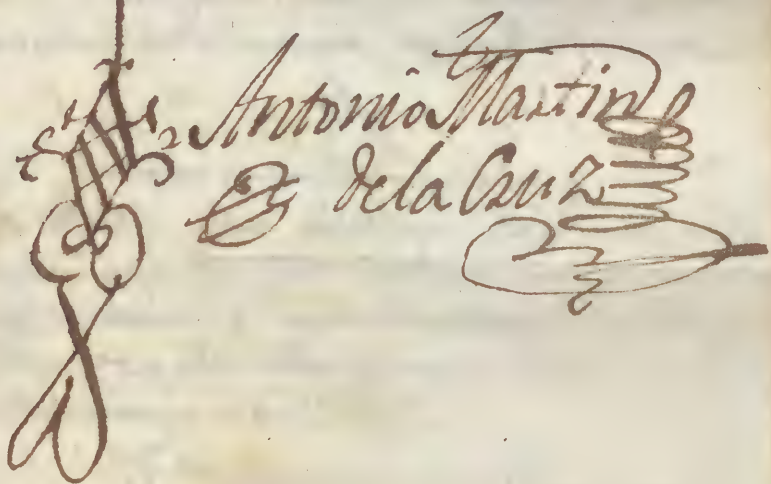 Antonio Martin
de la Cruz